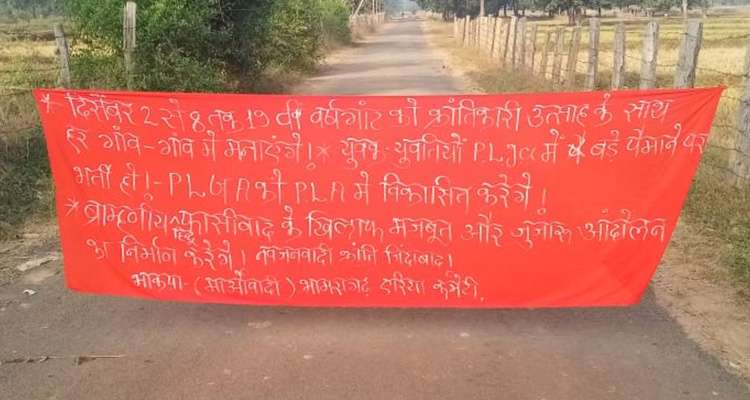 * दिसेंबर 2 से 8 तक 19 वी वर्षगांट को क्रांतिकारी उत्साह के साथ
हर गांव-गांव में मनाएंगे! * युवक-युवतियों PLGA में बड़े पैमाने पर
भर्ती हो! - PLGA को PLA में विकासित करेंगे!
* ब्राम्हणीय हिंदु फासीवाद के खिलाफ मजबूत और जुंजारू आंदोलन
का निर्माण करेंगे! नवजनवादी क्रांति जिंदाबाद!
भाकपा-(माओवादी) भामरागढ़ एरिया कमेटी.